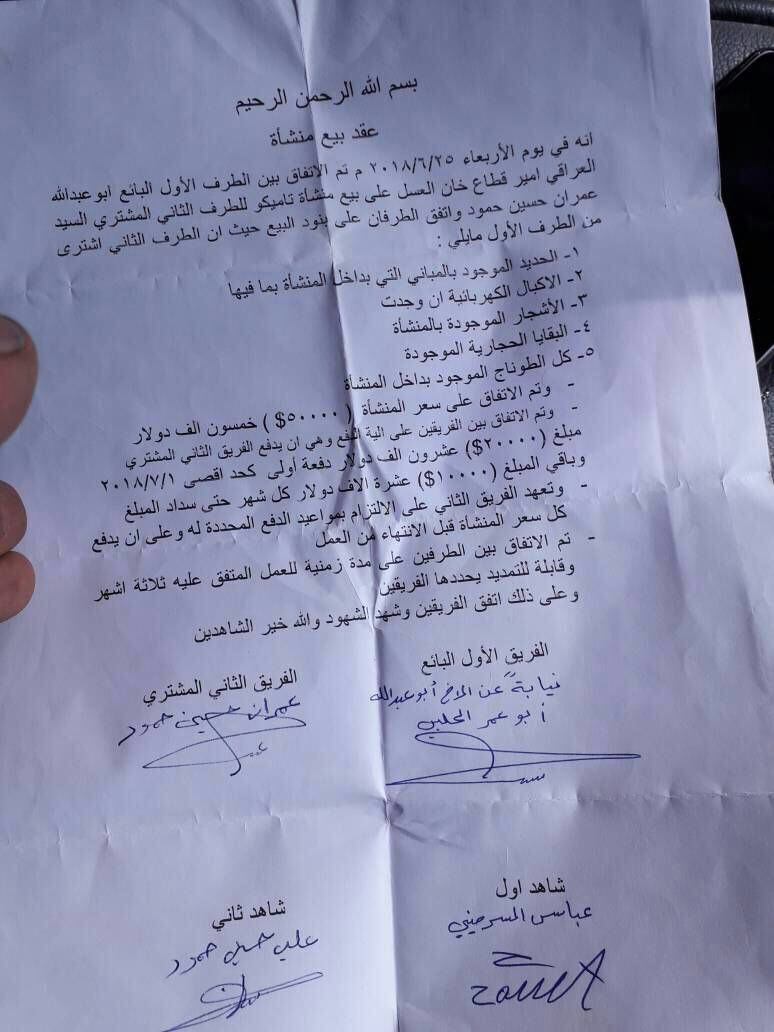 بسم الله الرحمن الرحيم
عقد بيع منشأة
انه في يوم الأربعاء ٢٠١٨/٦/٢٥ م تم الاتفاق بين الطرف الأول البائع ابو عبدالله
العراقي امير قطاع خان العسل على بيع منشأة تاميكو للطرف الثاني المشتري السيد
عمران حسين حمود واتفق الطرفان على بنود البيع حيث ان الطرف الثاني اشترى
من الطرف الأول مايلي :
١- الحديد الموجود بالمباني التي بداخل المنشأة بما فيها
٢- الاكبال الكهربائية ان وجدت
٣- الأشجار الموجودة بالمنشأة
٤- البقايا الحجارية الموجودة
٥- كل الطوناج الموجود بداخل المنشأة
- وتم الاتفاق على سعر المنشأة ( ٥٠٠٠٠$ ) خمسون الف دولار
- وتم الاتفاق بين الفريقين على الية الدفع وهي ان يدفع الفريق الثاني المشتري
مبلغ (٢٠٠٠٠$) عشرون الف دولار دفعة أولى كحد اقصى ٢٠١٨/٧/١
وباقي المبلغ (١٠٠٠٠$) عشرة الاف دولار كل شهر حتى سداد المبلغ
- وتعهد الفريق الثاني على الالتزام بمواعيد الدفع المحددة له وعلى ان يدفع
كل سعر المنشاة قبل الانتهاء من العمل
- تم الاتفاق بين الطرفين على مدة زمنية للعمل المتفق عليه ثلاثة اشهر
وقابلة للتمديد يحددها الفريقين
وعلى ذلك اتفق الفريقين وشهد الشهود والله خير الشاهدين
الفريق الأول البائع
نيابةً عن الاخ أبو عبدالله
أبو عمر الحلبي
الفريق الثاني المشتري
عمران حسين حمود
شاهد اول
عباس السرميني
شاهد ثاني
علي حسين حمود